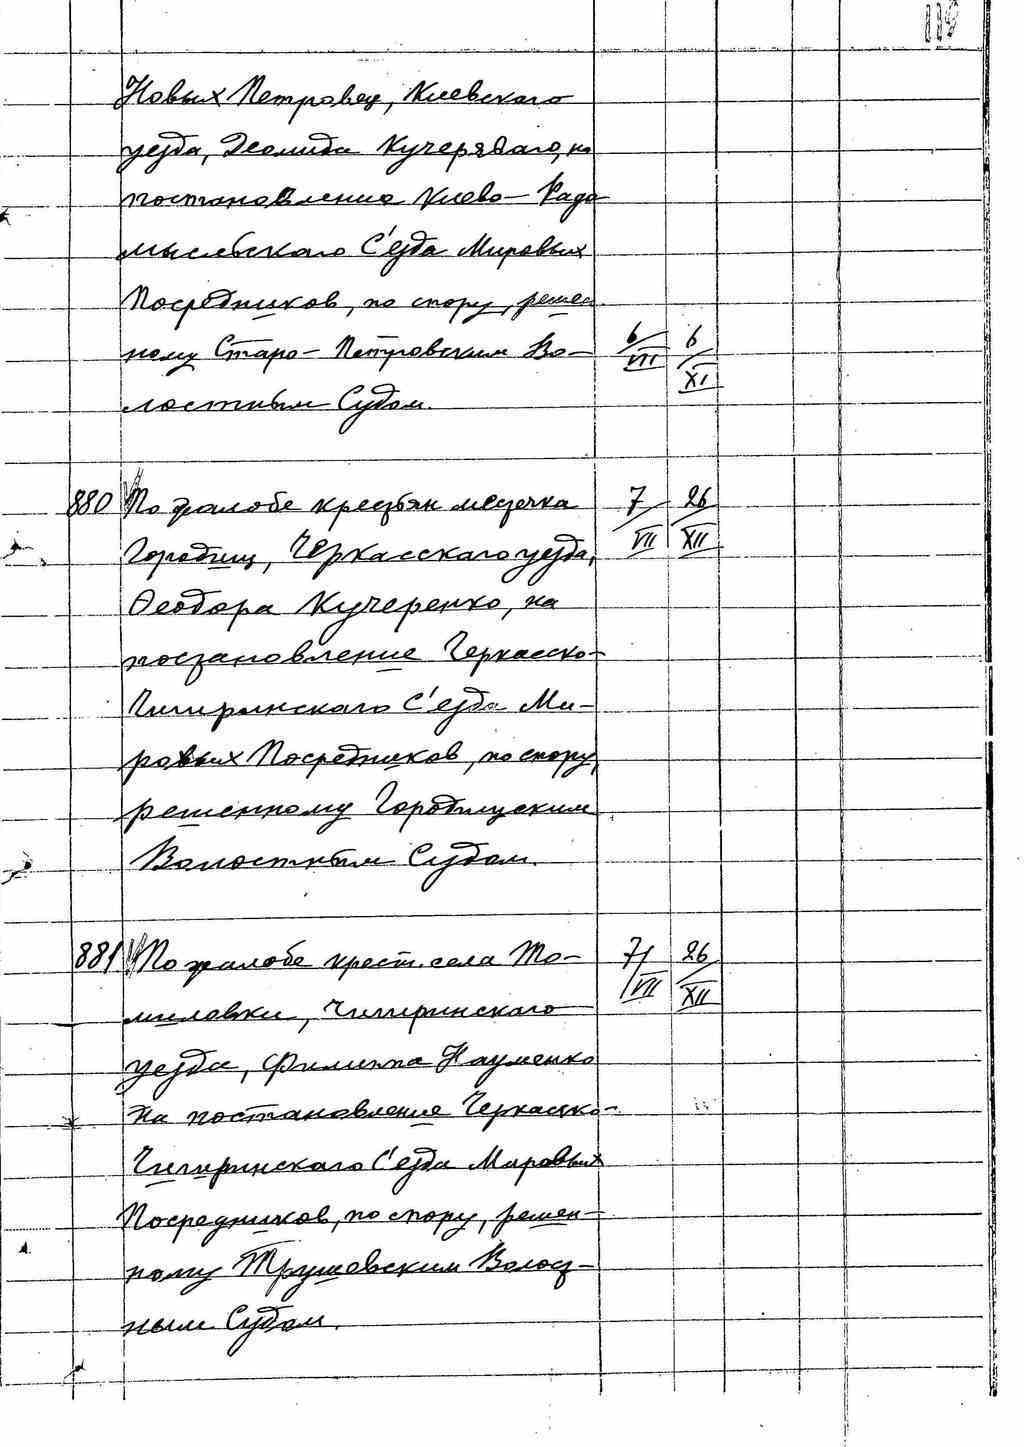 119
Новых Петровец, Киевского
уезда, Деомида Кучеряваго, на
постановление Киево-Радо
мысльскаго С'езда Мировых
Посредников, по спору, решен
ному Старо-Петровским Во-
6/VII 6/XI
лостным Судом.
880 По жалобе крестьян местечка 7/VII 26/XII
Городищ, Черкасскаго уезда,
Феодора Кучеренко, на
постановление Черкасско-
Чигиринскаго С'езда Ми-
ровых Посредников, по спору,
решенному Городищским
Волостным Судом.
881 По жалобе крест. села То- 7/VII 26/XII
миловки, Чигиринскаго
уезда, Филиппа Науменко
на постановление Черкасско-
Чигиринскаго С'езда Мировых
Посредников, по спору, решен-
ному Трушевским Волост-
ным Судом.